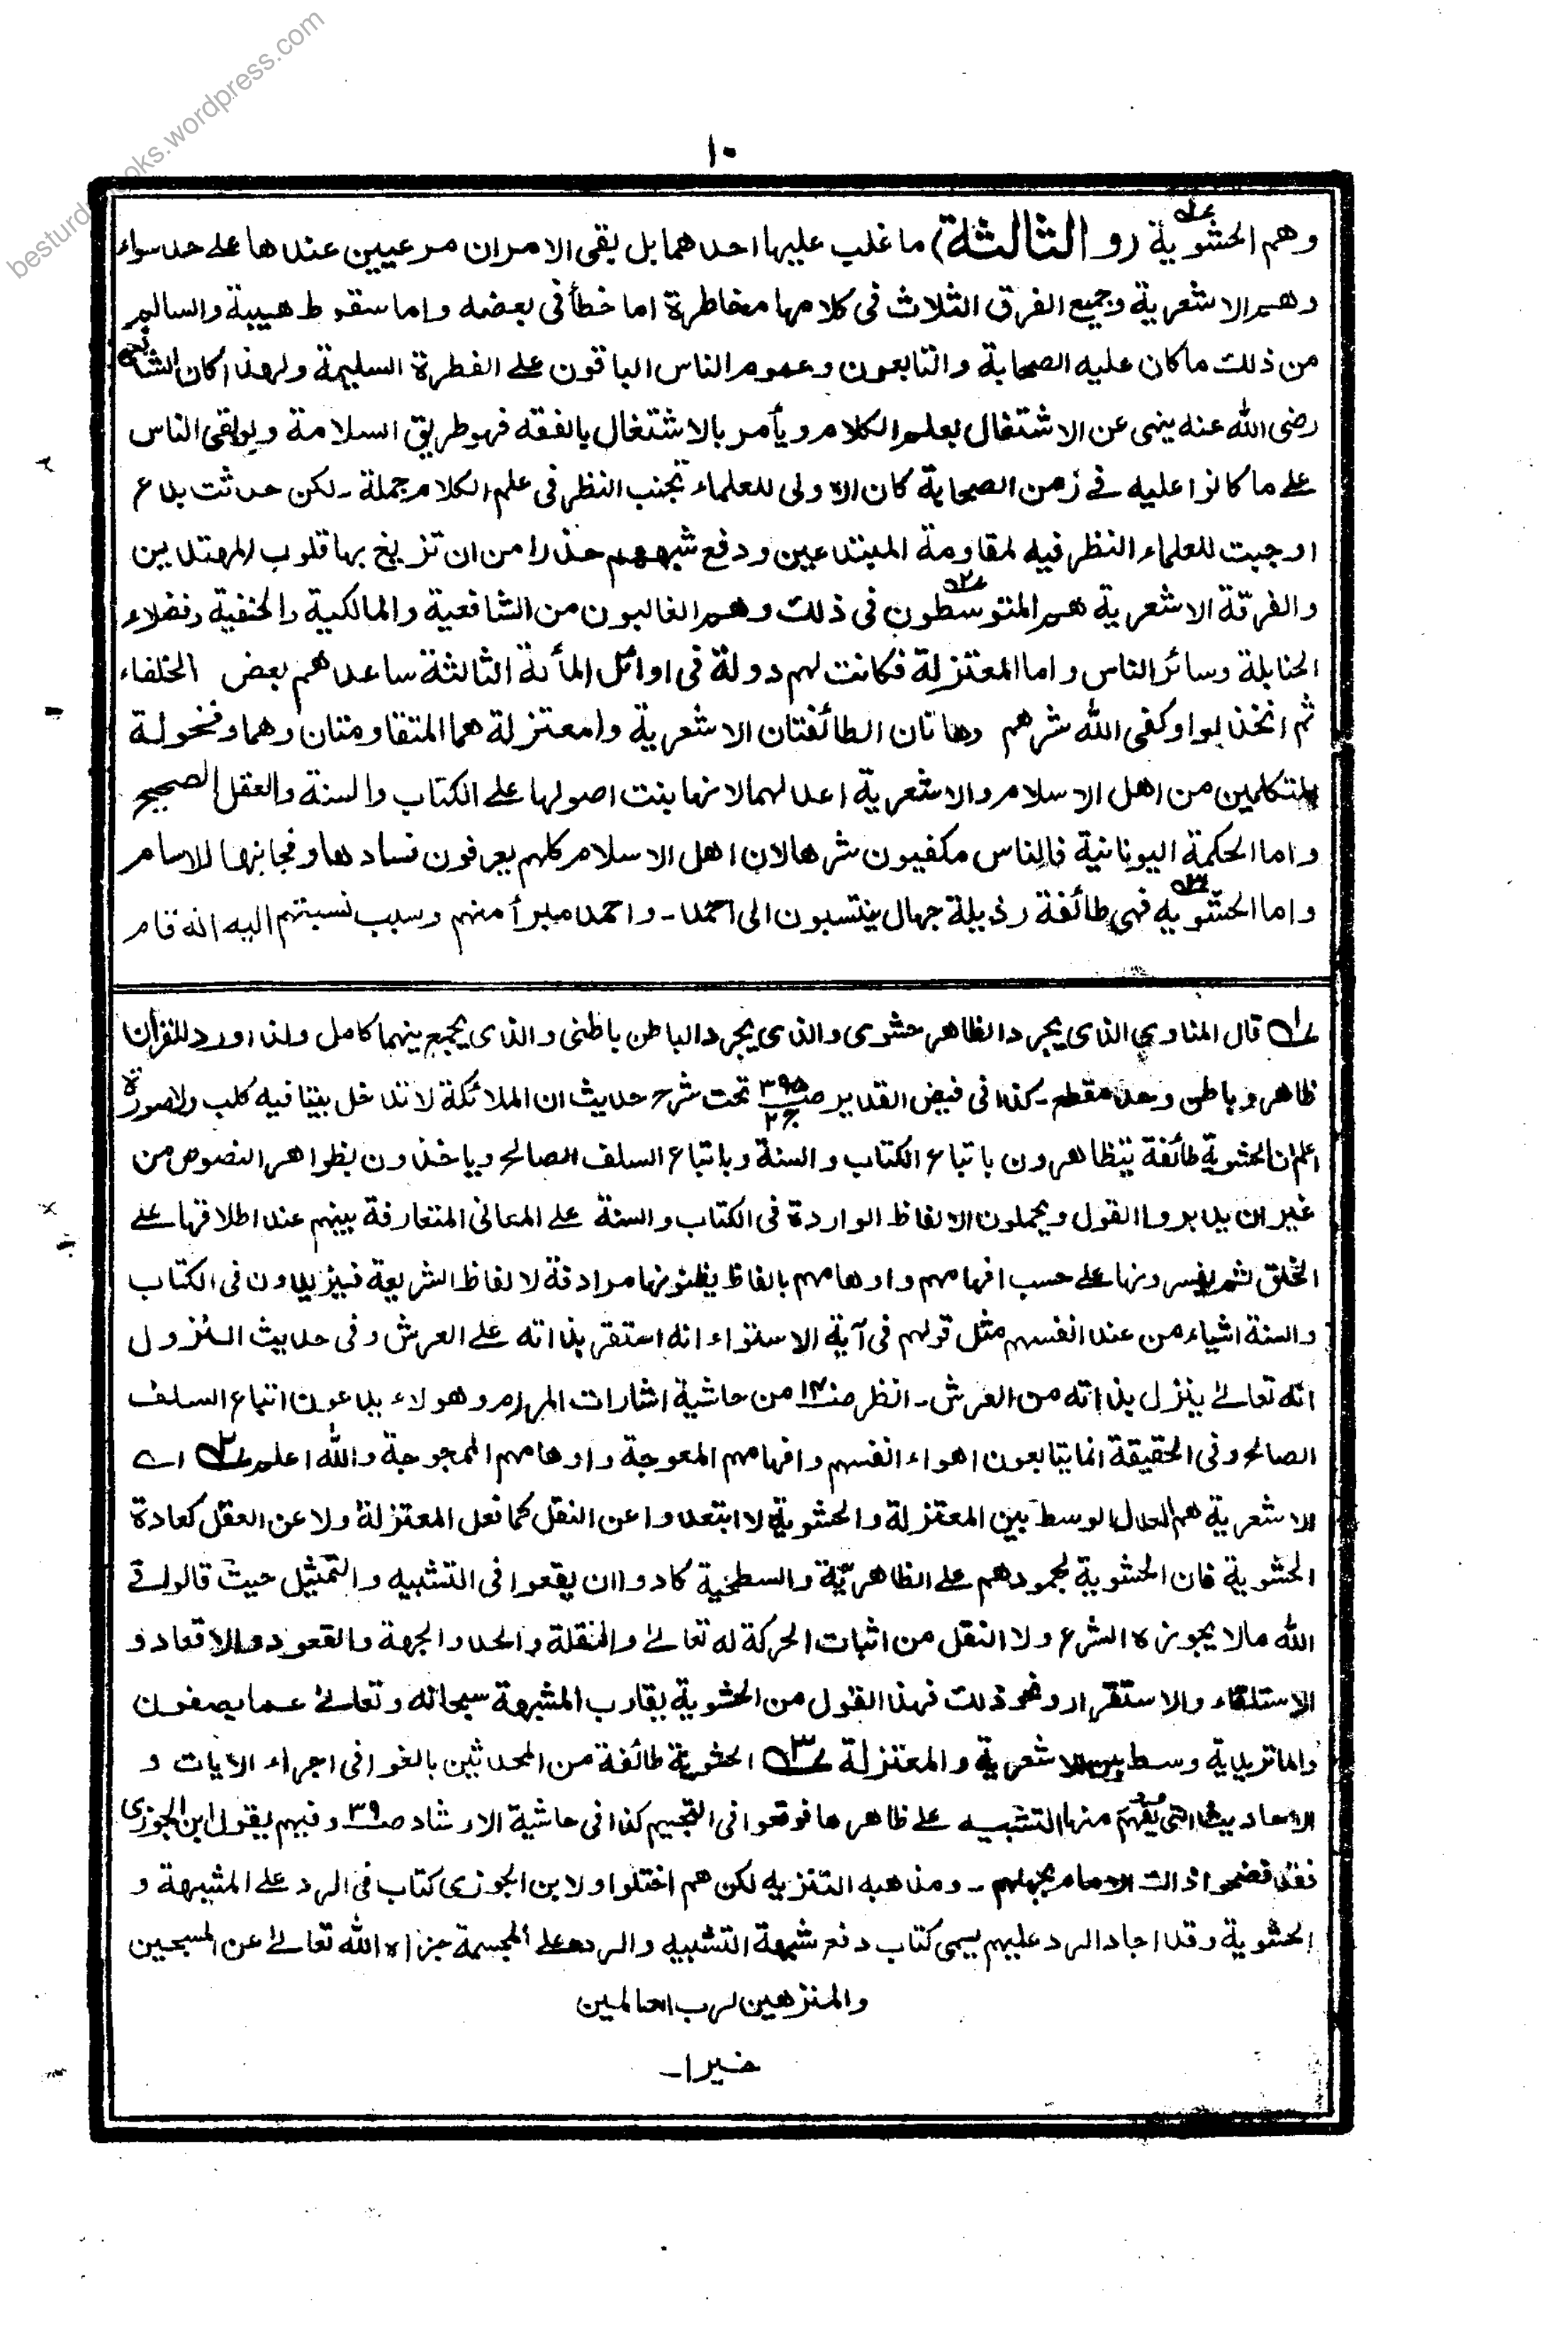 besturdubooks.wordpress.com
١٠
وهم الحشوية (والثالثة) ما غلب عليها احدهما بل بقى الامران مرعيين عندها على حد سواء
وهم الاشعرية وجميع الفرق الثلاث فى كلامها مخاطرة اما خطأ فى بعضه واما سقوط هيبة والسالم
من ذلك ما كان عليه الصحابة والتابعون وعموم الناس الباقون على الفطرة السليمة ولهذا كان الشافعى
رضى الله عنه ينهى عن الاشتغال بعلم الكلام ويأمر بالاشتغال بالفقه فهو طريق السلامة ولو بقى الناس
على ما كانوا عليه فى زمن الصحابة كان الاولى للعلماء تجنب النظر فى علم الكلام جملة ـ لكن حدثت بدع
اوجبت للعلماء النظر فيه لمقاومة المبتدعين ودفع شبههم حذرا من ان تزيغ بها قلوب المهتدين
والفرقة الاشعرية هم المتوسطون فى ذلك وهم الغالبون من الشافعية والمالكية والحنفية وفضلاء
الحنابلة وسائر الناس واما المعتزلة فكانت لهم دولة فى اوائل المأئة الثالثة ساعدهم بعض الخلفاء
ثم انخذلوا وكفى الله شرهم وهاتان الطائفتان الاشعرية وامعتزلة هما المتقاومتان وهما فحولة
المتكلمين من اهل الاسلام والاشعرية اعدلهما لانها بنت اصولها على الكتاب والسنة والعقل الصحيح
واما الحكمة اليونانية فالناس مكفيون شرها لان اهل الاسلام كلهم يعرفون فسادها ومجانبها للاسام
واما الحشوية فهى طائفة رذيلة جهال ينتسبون الى احمد ـ واحمد مبرأ منهم وسبب نسبتهم اليه انه قام
١ قال المناوي الذى يجرد الظاهر حشوى والذى يجرد الباطن باطنى والذى يجمع بينهما كامل ولذا ورد للقرآن
ظاهر وباطن وحد ومقطع ـ كذا فى فيض القدير صـ٣٩٥ ج٢ تحت شرح حديث ان الملائكة لا تدخل بيتا فيه كلب ولا صورة
اعلم ان الحشوية طائفة يتظاهرون باتباع الكتاب والسنة وباتباع السلف الصالح وياخذون بظواهر النصوص من
غير ان يدبروا القول ويحملون الالفاظ الواردة فى الكتاب والسنة على المعانى المتعارفة بينهم عند اطلاقها على
الخلق ثم يفسرونها على حسب افهامهم واوهامهم بالفاظ يظنونها مرادفة لالفاظ الشريعة فيزيدون فى الكتاب
والسنة اشياء من عند انفسهم مثل قولهم فى آية الاستواء انه استقر بذاته على العرش وفى حديث النزول
انه تعالى ينزل بذاته من العرش ـ انظر صـ١٤ من حاشية اشارات المرام وهولاء يدعون اتباع السلف
الصالح وفى الحقيقة انما يتابعون اهواء انفسهم وافهامهم المعوجة واوهامهم الممجوجة والله اعلم ٢ اے
الاشعرية هم العدل الوسط بين المعتزلة والحشوية لا ابتعدوا عن النقل كما فعل المعتزلة ولا عن العقل كعادة
الحشوية فان الحشوية لجمودهم على الظاهريّة والسطحية كادوا ان يقعوا فى التشبيه والتمثيل حيث قالوا فى
الله مالا يجوزه الشرع ولا النقل من اثبات الحركة له تعالى والنقلة والحد والجهة والقعود والاقعاد و
الاستلقاء والاستقرار ونحو ذلك فهذا القول من الحشوية يقارب المشبهة سبحانه وتعالى عما يصفون
والماتريدية وسط بين الاشعرية والمعتزلة ٣ الحشوية طائفة من المحدثين بالغوا فى اجراء الايات و
الاحاديث التى يفهم منها التشبيه على ظاهرها فوقعوا فى التجسيم كذا فى حاشية الارشاد صـ٣٩ وفيهم يقول ابن الجوزى
فقد فضحوا ذالك الامام بجهلهم ـ ومذهبه التنزيه لكن هم اختلوا ولابن الجوزى كتاب فى الرد على المشبهة و
الحشوية وقد اجاد الرد عليهم يسمى كتاب دفع شبهة التشبيه والرد على المجسمة جزاه الله تعالى عن المسبحين
والمنزهين لرب العالمين
خيرا ـ